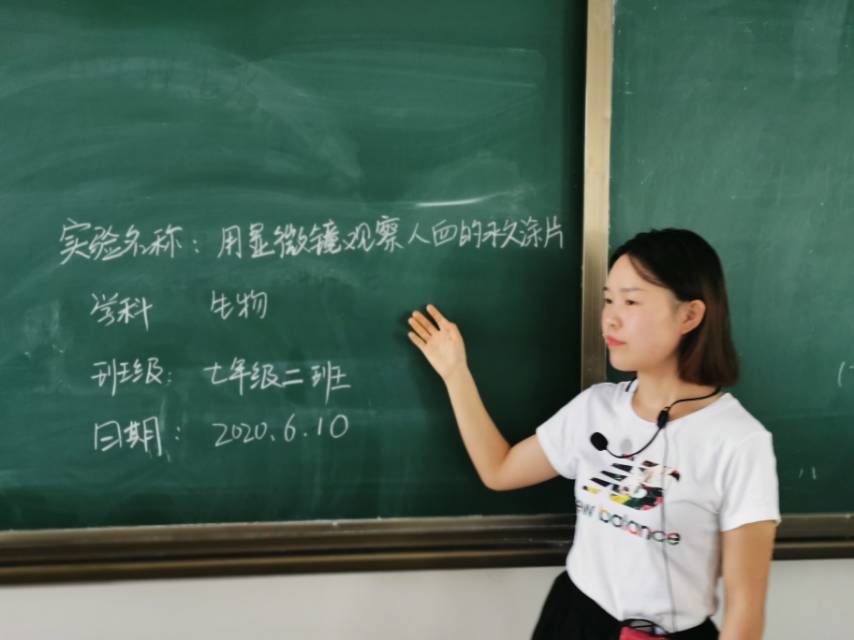 实验名称：用显微镜观察人血的永久涂片
学科 生物
班级：七年级二班
日期：2020.6.10
new balance